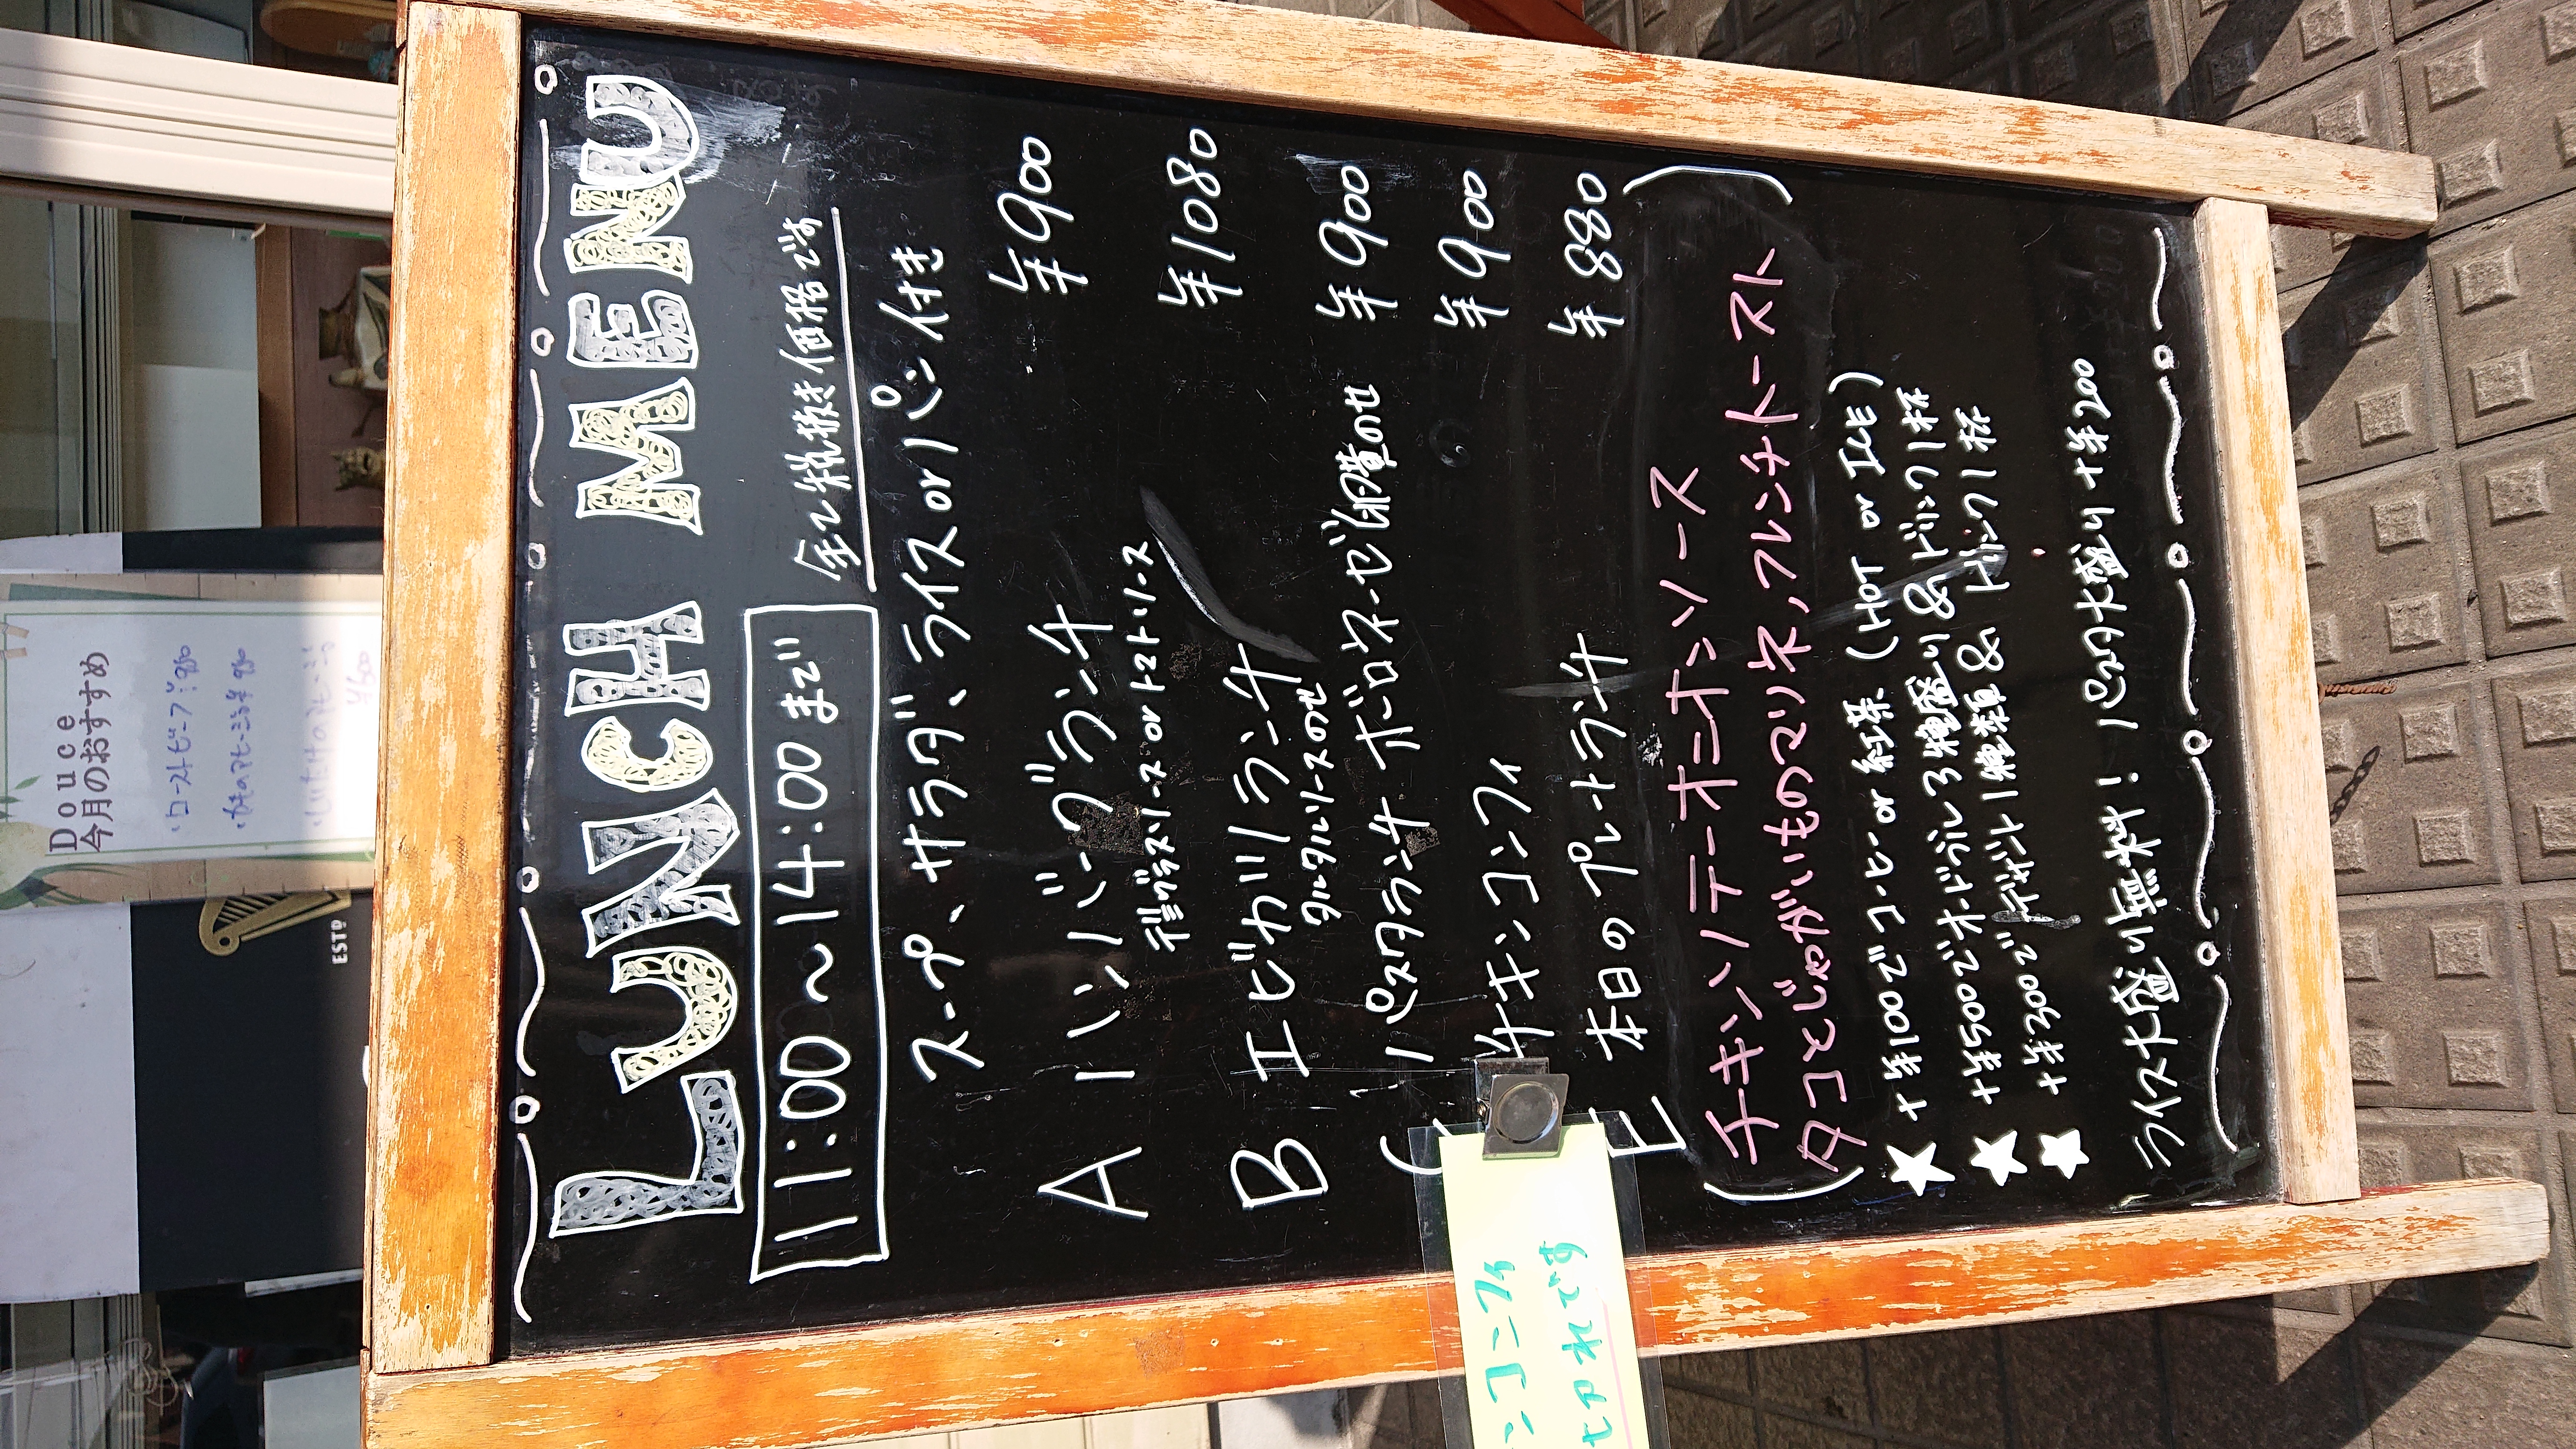 LUNCH MENU
11:00～14:00まで
全て税抜き価格です
スープ、サラダ、ライスorパン付き
A ハンバーグランチ ¥900
デミグラスソース or トマトソース
B エビカツランチ ¥1080
タルタルソースのせ
C パスタランチ ボロネーゼ 卵黄のせ ¥900
チキンコンフィ ¥900
E 本日のプレートランチ ¥880
(チキンソテーオニオンソース
タコとじゃがいものマリネ,フレンチトースト)
★ +¥100でコーヒー or 紅茶 (HOT or ICE)
★ +¥500でオードブル3種盛り&ドリンク1杯
★ +¥300でデザート1種類& ドリンク1杯
ライス大盛り無料! パスタ大盛り+¥200
ンコンフィ
切れです
Douce
今月のおすすめ
・ローストビーフ ¥980
ESTD